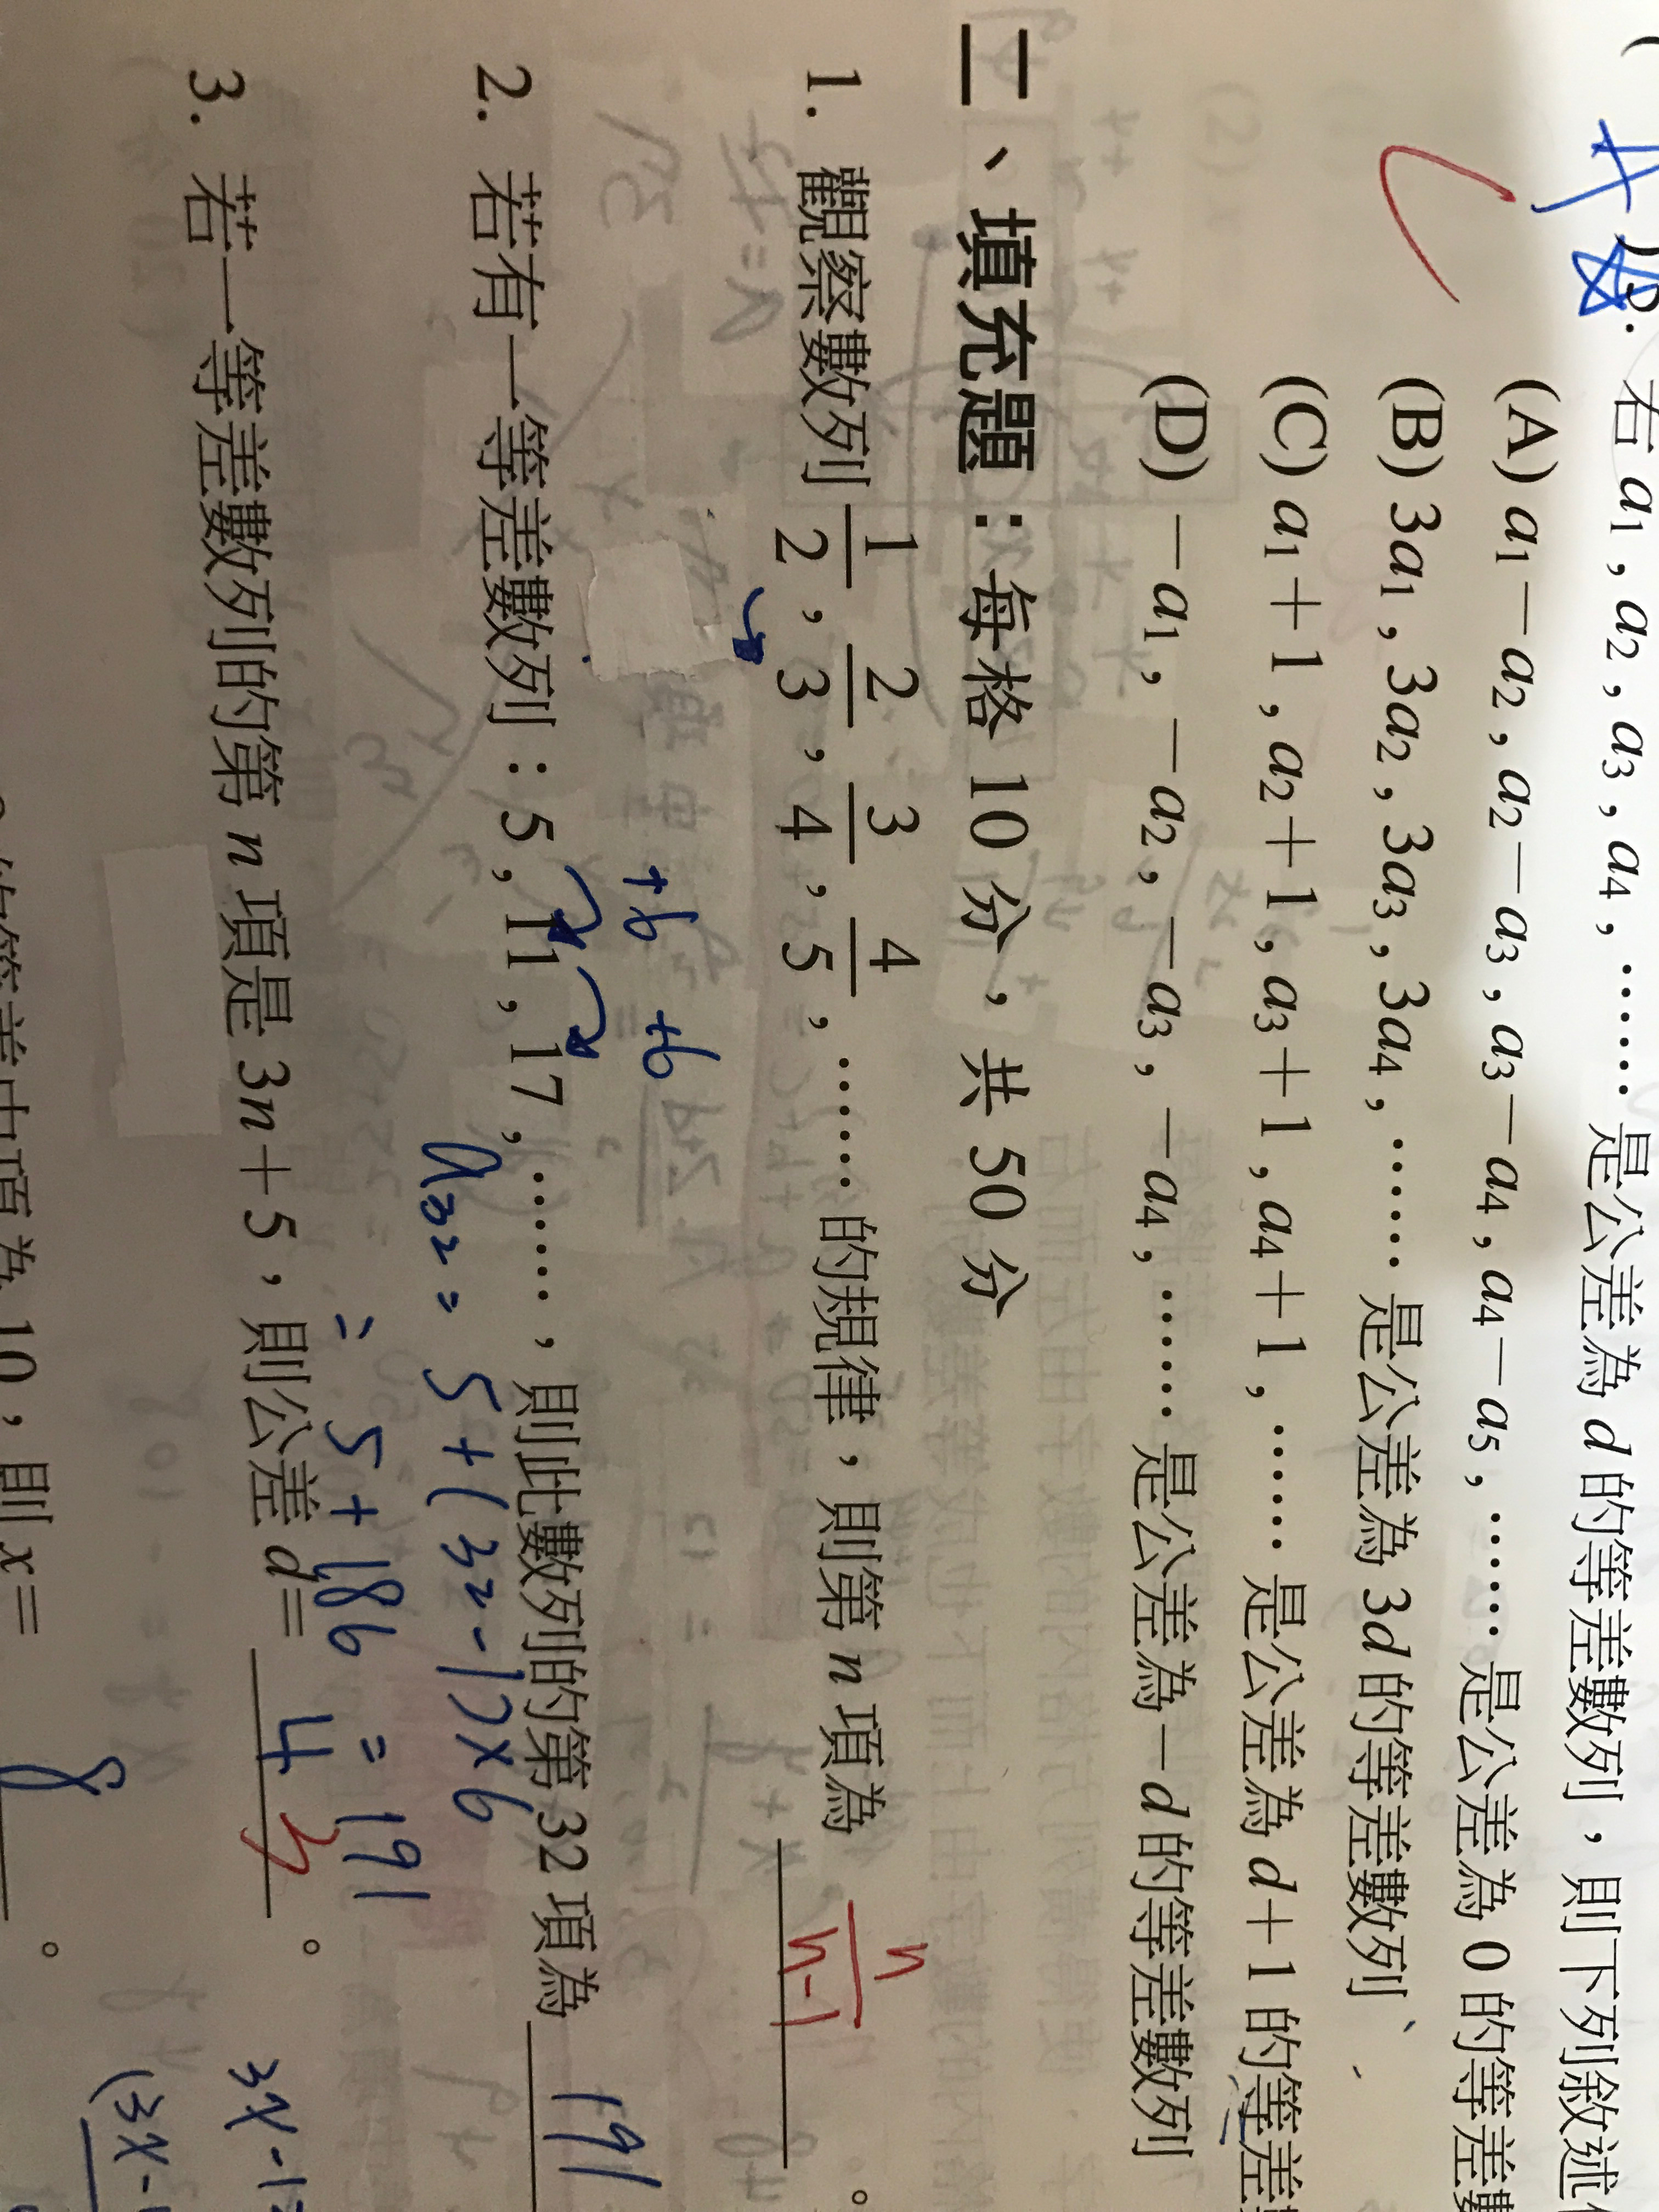 若 a₁,a₂,a₃,a₄,……是公差為 d 的等差數列,則下列敘述
(A) a₁－a₂,a₂－a₃,a₃－a₄,a₄－a₅,……是公差為 0 的等差數
(B) 3a₁,3a₂,3a₃,3a₄,……是公差為 3d 的等差數列
(C) a₁＋1,a₂＋1,a₃＋1,a₄＋1,……是公差為 d＋1 的等差
(D) －a₁,－a₂,－a₃,－a₄,……是公差為－d 的等差數列
二、填充題:每格 10 分,共 50 分
1. 觀察數列 1/2,2/3,3/4,4/5,……的規律,則第 n 項為 n/n-1 。
+6 +6
2. 若有一等差數列:5,11,17,……,則此數列的第 32 項為 191
a₃₂ = 5+(32-1)×6
= 5+186 = 191
3. 若一等差數列的第 n 項是 3n＋5,則公差 d＝ 4 3 。
3x-1
(3x-
的等差中項為 10,則 x＝ 8 。